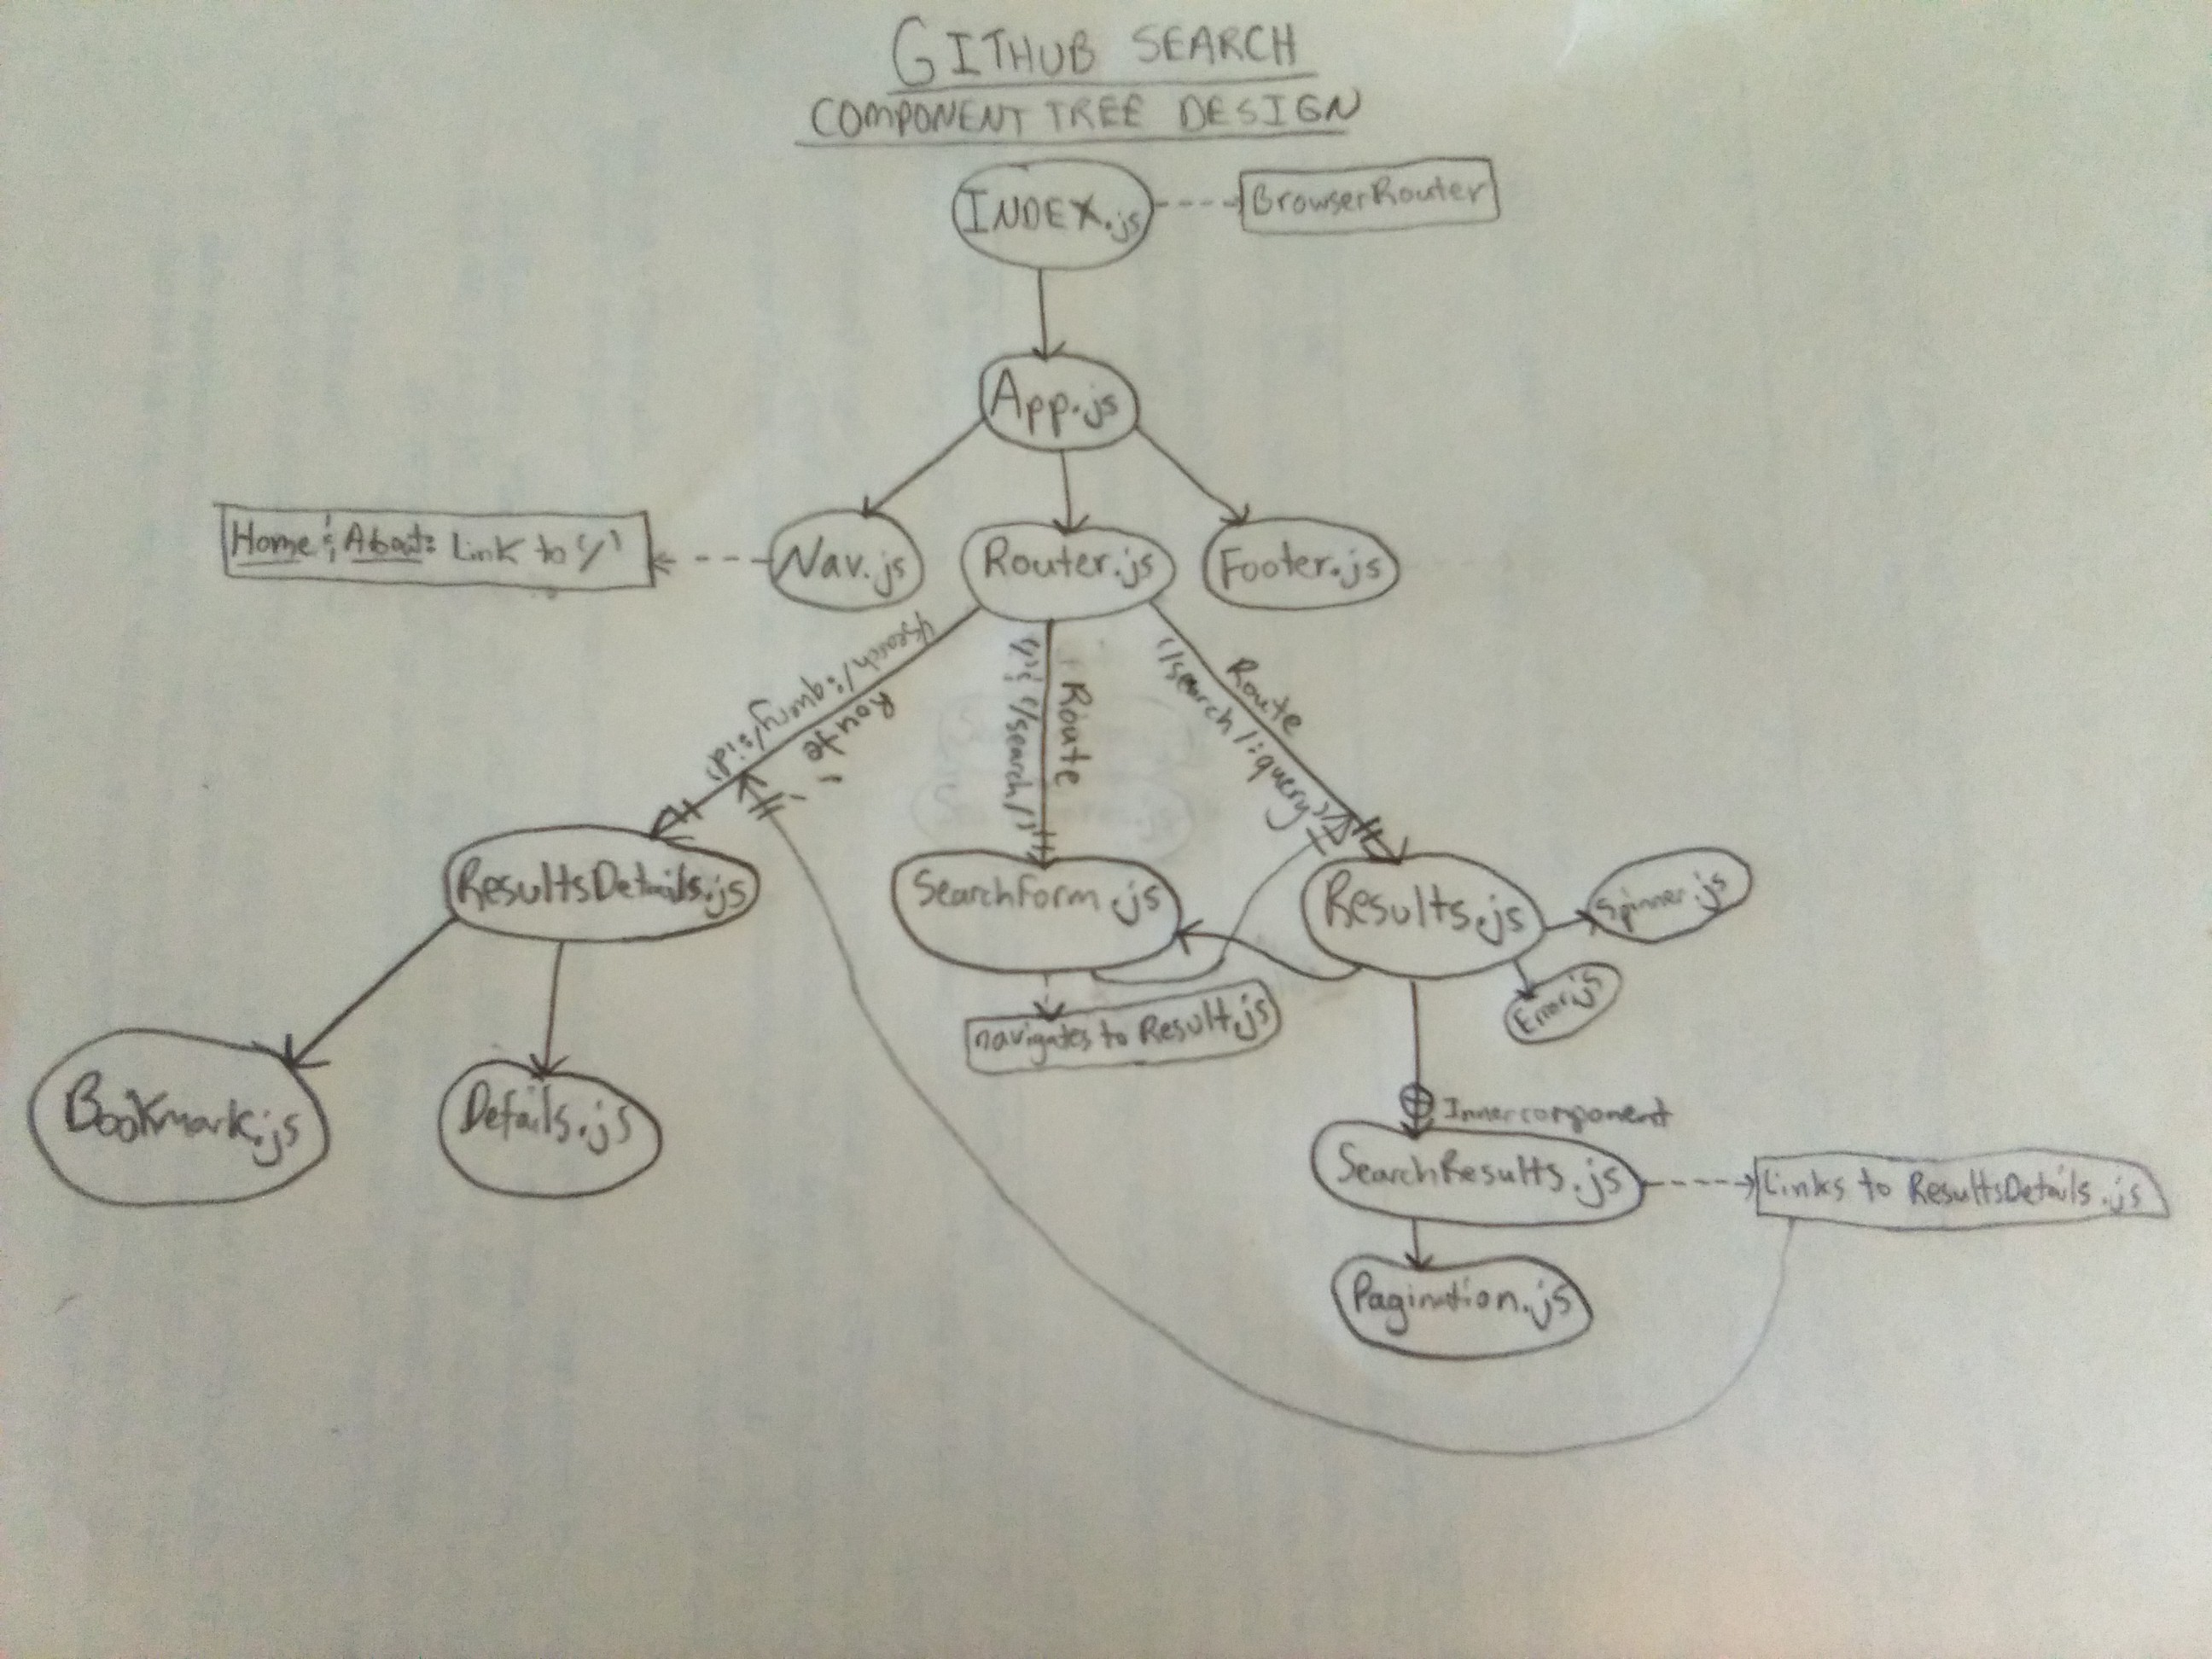 GITHUB SEARCH
COMPONENT TREE DESIGN
INDEX.js
BrowserRouter
App.js
Home & About: Link to '/'
Nav.js
Router.js
Footer.js
'/search/:query/:id'
Route
'/' & '/search/'
Route
'/search/:query'
Route
ResultsDetails.js
SearchForm.js
Results.js
Spinner.js
Error.js
navigates to Result.js
Bookmark.js
Details.js
Innercomponent
SearchResults.js
Links to ResultsDetails.js
Pagination.js